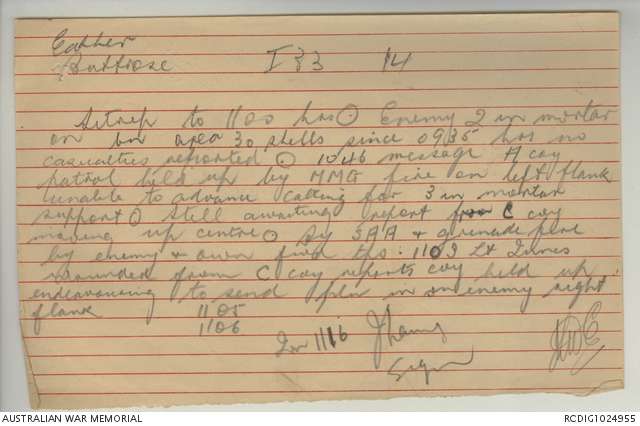 Eather
I 33 14
Sitrep to 1100 hrs⊙ Enemy 2 in mortar
on bn area 30 shells since 0935 hrs no
casualties reported ⊙ 1046 message A coy
patrol held up by MMG fire on left flank
unable to advance calling for 3 in mortar
support⊙ Still awaiting report from C coy
moving up centre⊙ SAA & grenade fire
by enemy & own fwd tps. 1103 Lt
wounded from C coy reports coy held up
endeavouring to send pln in on enemy right
flank 1105
1106
1116
AUSTRALIAN WAR MEMORIAL
RCDIG1024955